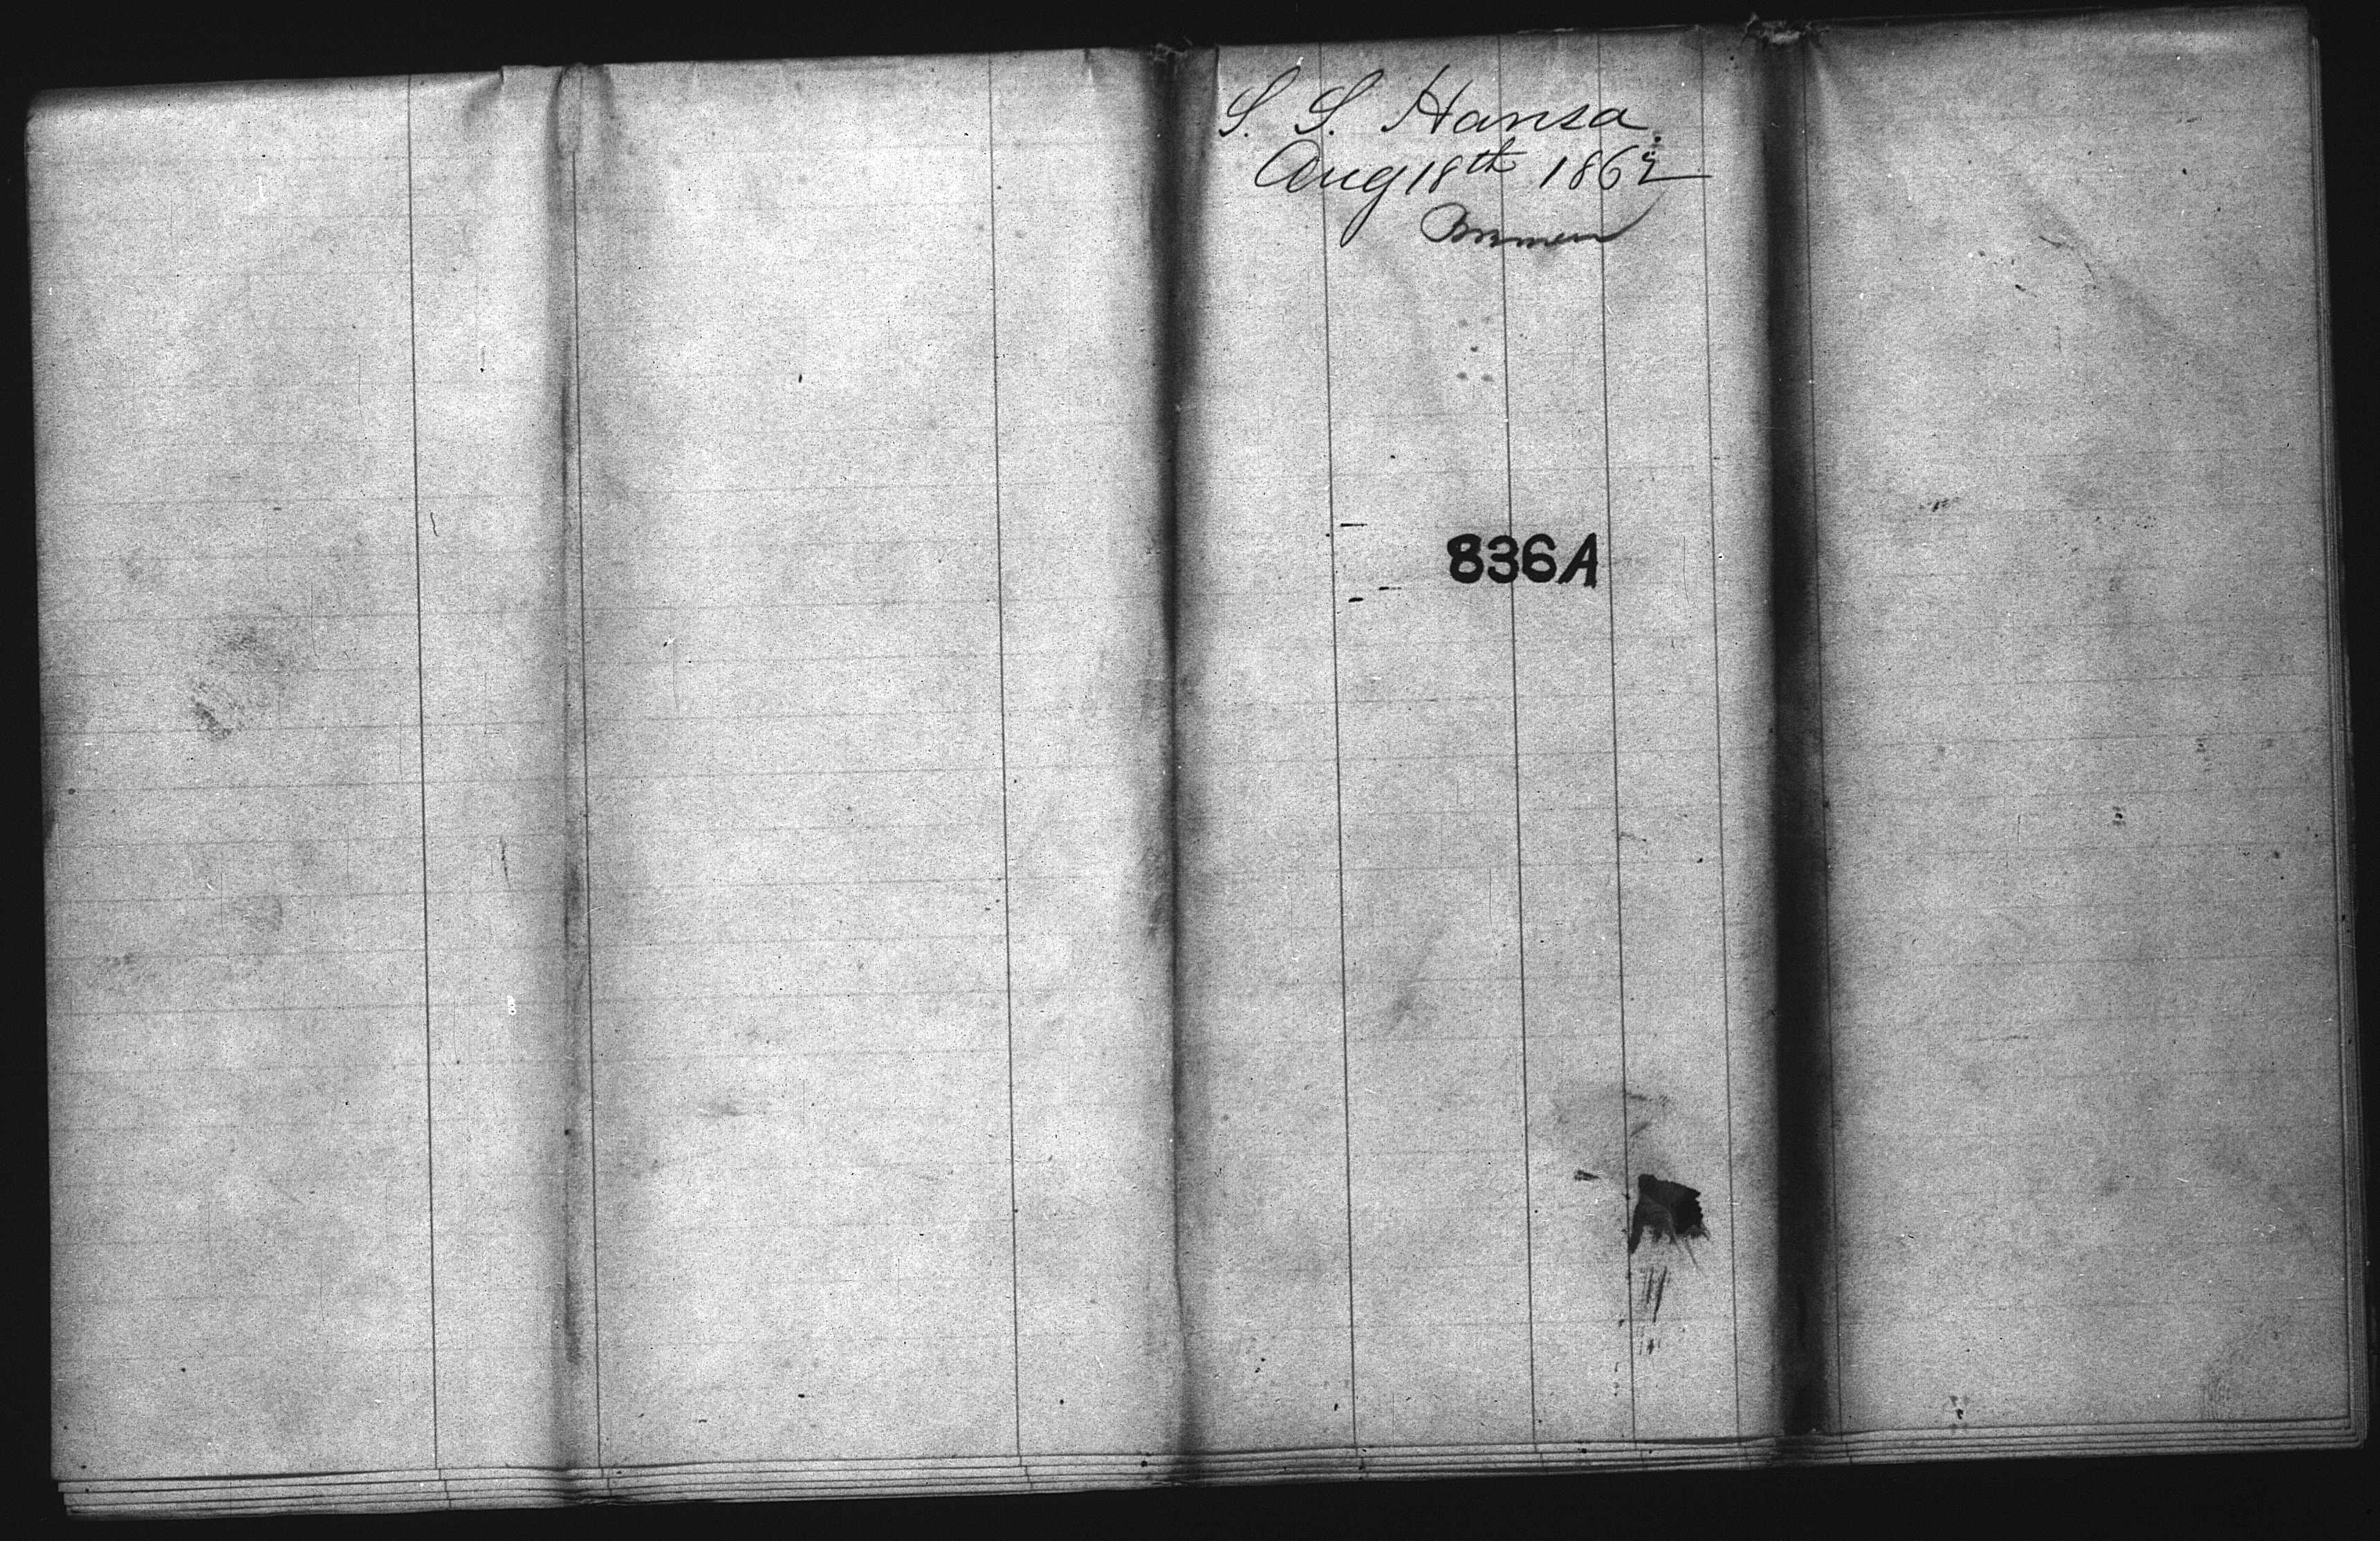 S. S. Hansa
Aug 18th 1862
Bremen
836A